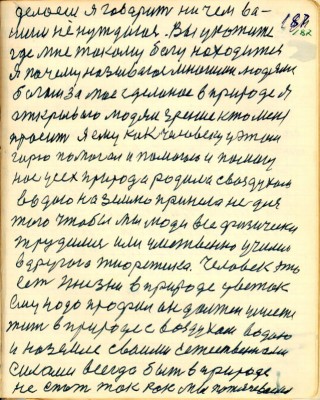 делаем Я говарит ни чем ва-
ми не нуждаюсь. Вы укажите
где мне такому богу находится
Я почему называюсь многими людями
богам за мое сделаное в природе Я
открываю людям зрение кто меня
просит я ему как человеку у этом
горю помогал и помогаю и помогу
нас усех природа родила с воздухом
водою на землю приняла не для
того чтобы мы люди все физически
трудимся или умственно учимся
в другого теоретика. Человек эта
есть жизни в природе цветок
ему надо профили он должен уметь
жить в природе с воздухом водою
и на земле своими естественными
силами всегда быть в природе
не спать так как мы
187
182